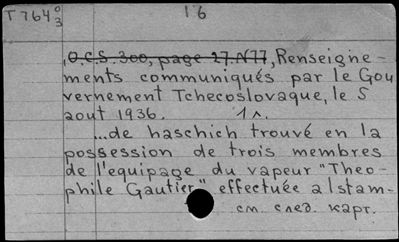 T 764 0/3 16
, O.C.S. 300, page 27. N77, Renseigne-
ments communiqués par le Gou
vernement Tchecoslovaque, le 5
aout 1936. 1 л.
...de haschich trouvé en la
possession de trois membres
de l'equipage du vapeur "Theo-
phile Gautier" effectuée a Istam-
см. след. карт.